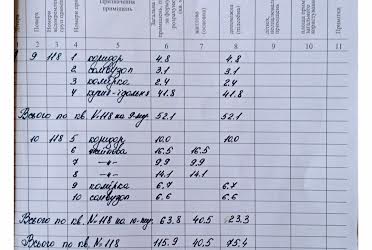 призначення
приміщень
2 3 4 5 6 7 8 9 10 11
9 118 1 коридор 4.8 4.8
2 санвузол 3.1 3.1
3 комірка 2.4 2.4
4 кухня-їдальня 41.8 41.8
Всього по кв. N-118 на 9-му 52.1 52.1
10 118 5 коридор 10.0 10.0
6 житлова 16.5 16.5
7 —"— 9.9 9.9
8 —"— 14.1 14.1
9 комірка 6.7 6.7
10 санвузол 6.6 6.6
Всього по кв. N-118 на 10-му 63.8 40.5 23.3
Всього по кв. N-118 115.9 40.5 75.4